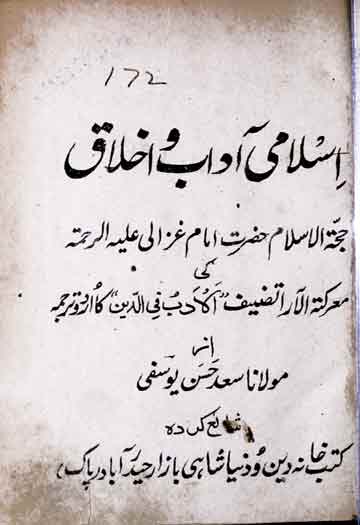 172
اِسلامی آداب و اخلاق
حجۃ الاسلام حضرت امام غزالی علیہ الرحمۃ
کی
معرکۃ الآرا تصنیف "اَلْاَدَبُ فِی الدِّین" کا اُردو ترجمہ
از
مولانا سعد حسَن یوسفی
شائع کردہ
کتب خانہ دین و دُنیا شاہی بازار حیدرآباد (پاک)